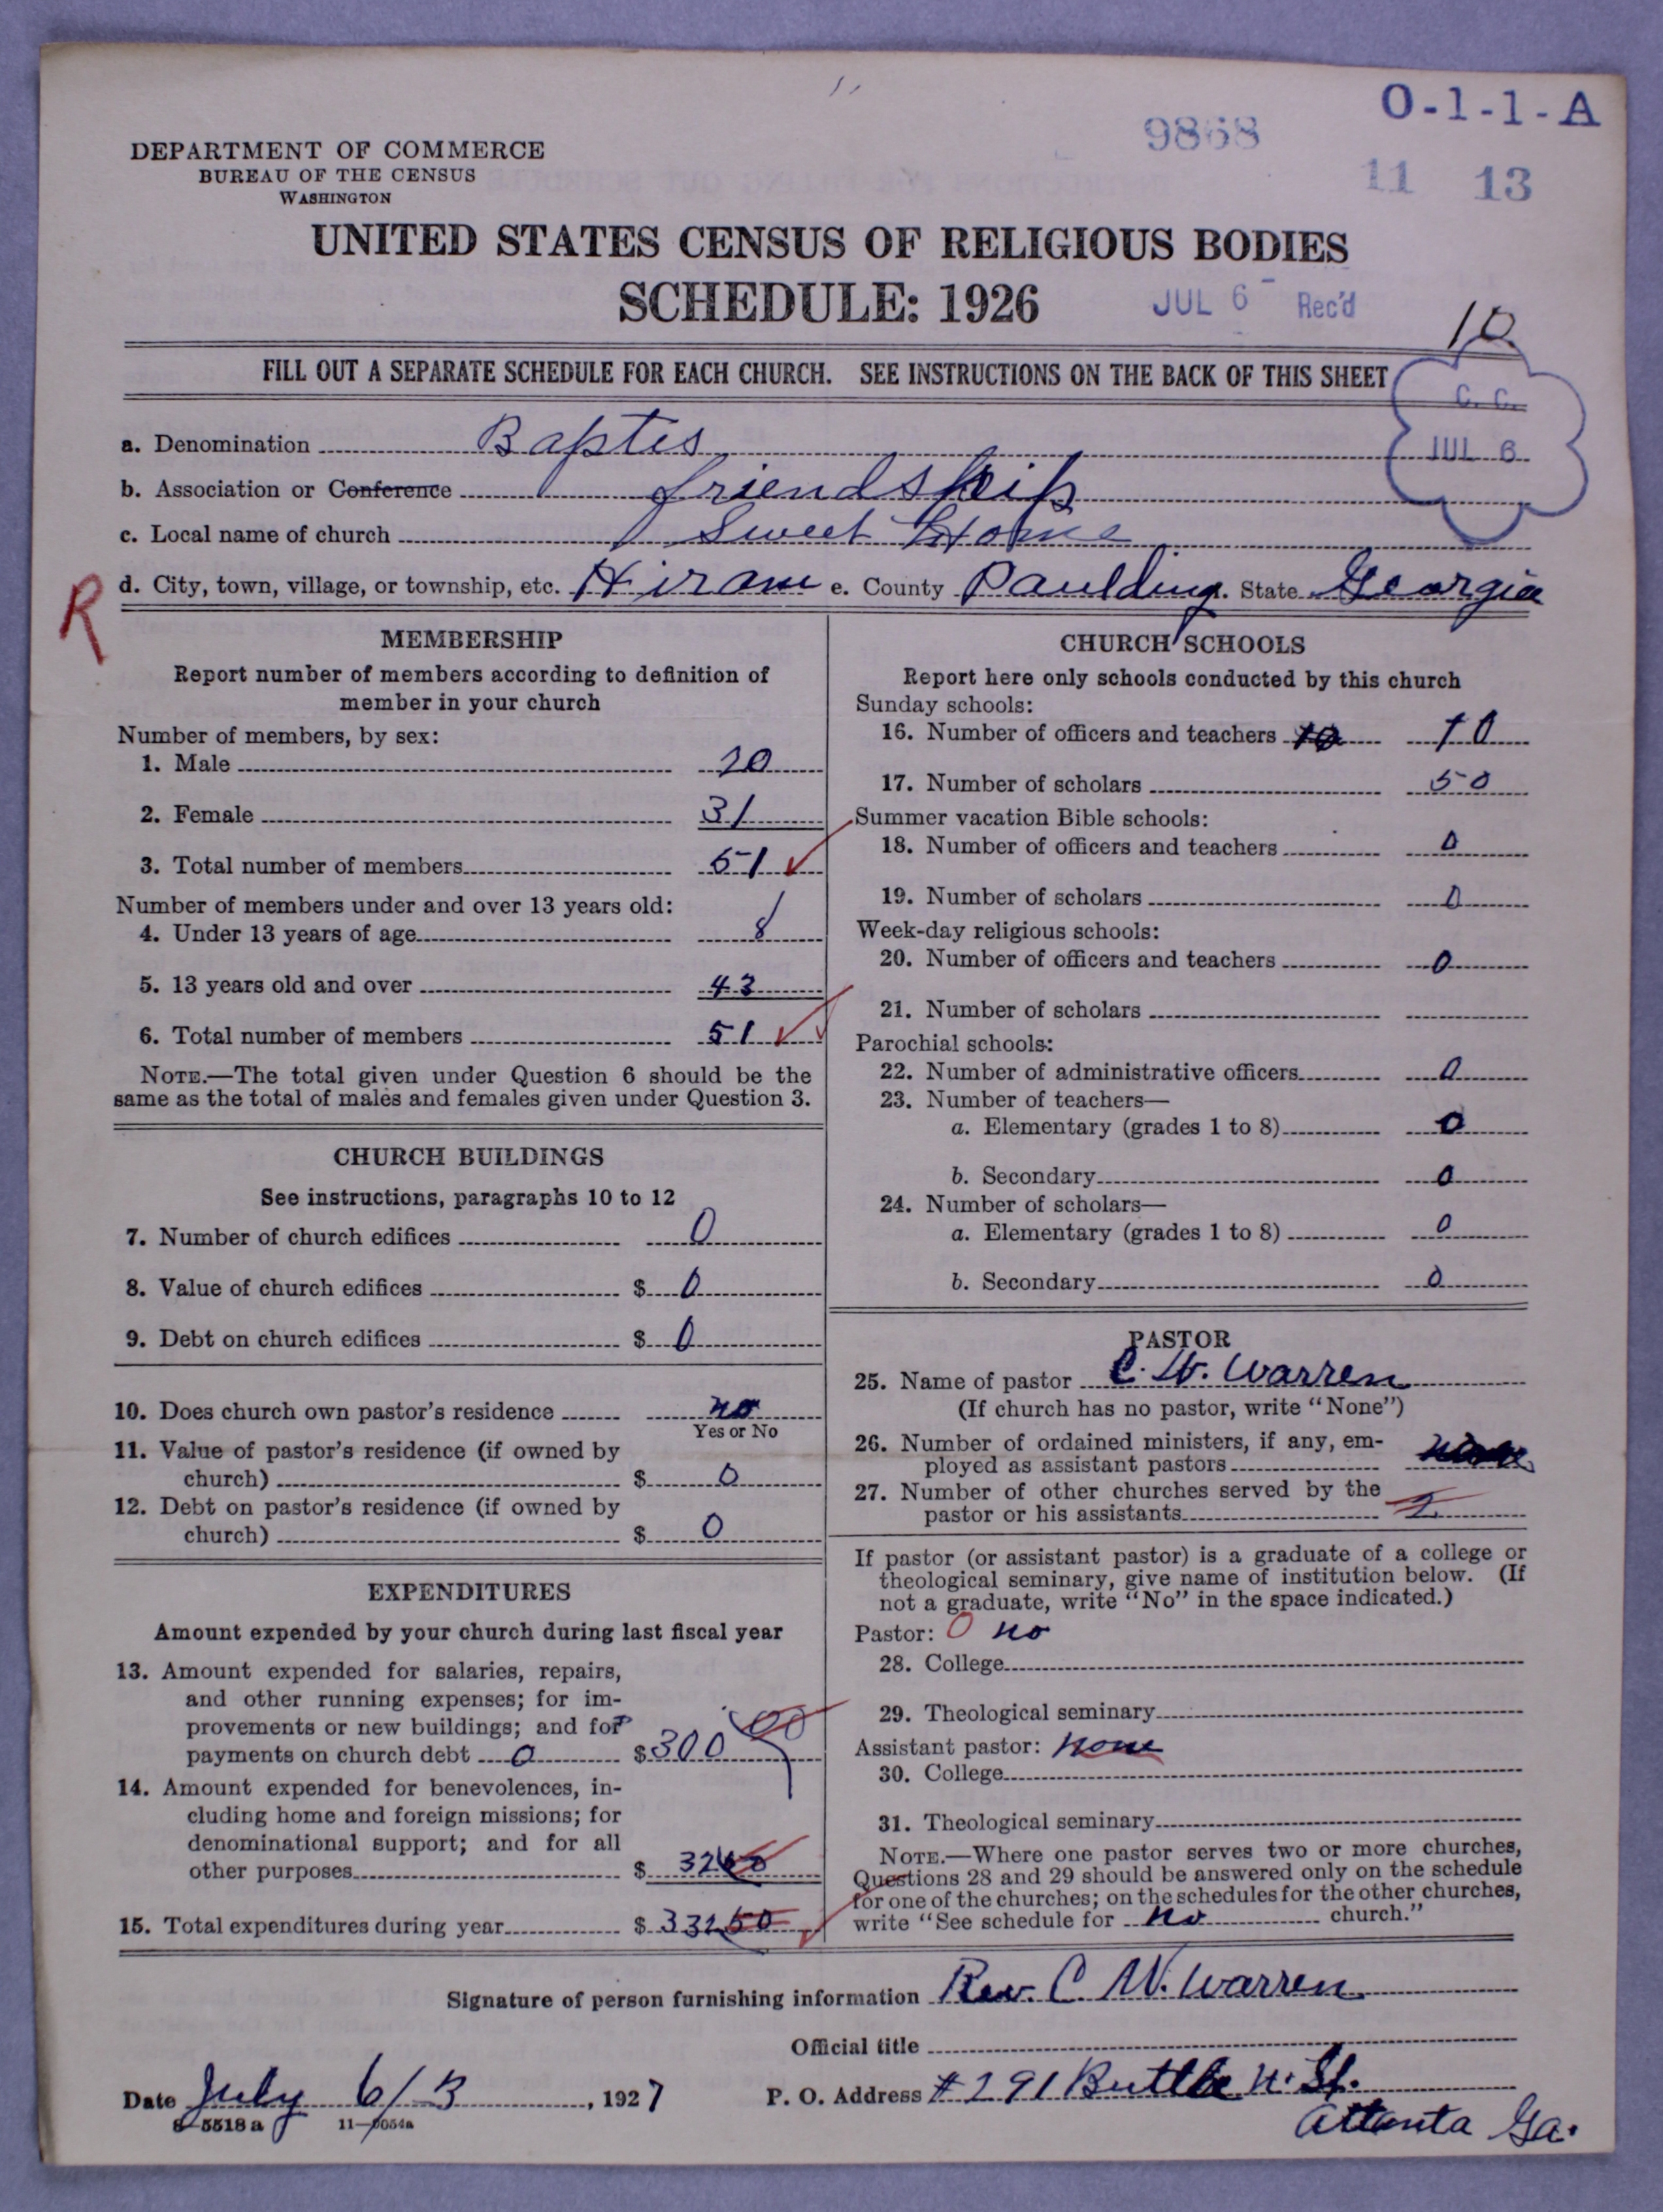 O-1-1-A
9868
11 13
DEPARTMENT OF COMMERCE
BUREAU OF THE CENSUS
WASHINGTON
UNITED STATES CENSUS OF RELIGIOUS BODIES
SCHEDULE: 1926
JUL 6 - Rec'd
10
FILL OUT A SEPARATE SCHEDULE FOR EACH CHURCH. SEE INSTRUCTIONS ON THE BACK OF THIS SHEET
C. C.
JUL 6
a. Denomination Baptis
b. Association or Conference friendship
c. Local name of church Sweet Home
R
d. City, town, village, or township, etc. Hiram e. County Paulding. State Georgia
MEMBERSHIP
Report number of members according to definition of
member in your church
Number of members, by sex:
1. Male 20
2. Female 31
3. Total number of members 51
Number of members under and over 13 years old:
4. Under 13 years of age 8
5. 13 years old and over 43
6. Total number of members 51
NOTE.—The total given under Question 6 should be the
same as the total of males and females given under Question 3.
CHURCH BUILDINGS
See instructions, paragraphs 10 to 12
7. Number of church edifices 0
8. Value of church edifices $ 0
9. Debt on church edifices $ 0
10. Does church own pastor's residence no
Yes or No
11. Value of pastor's residence (if owned by
church) $ 0
12. Debt on pastor's residence (if owned by
church) $ 0
EXPENDITURES
Amount expended by your church during last fiscal year
13. Amount expended for salaries, repairs,
and other running expenses; for im-
provements or new buildings; and for
payments on church debt 0 $ 300 00
14. Amount expended for benevolences, in-
cluding home and foreign missions; for
denominational support; and for all
other purposes $ 32
15. Total expenditures during year $ 332 50
CHURCH SCHOOLS
Report here only schools conducted by this church
Sunday schools:
16. Number of officers and teachers 10 10
17. Number of scholars 50
Summer vacation Bible schools:
18. Number of officers and teachers 0
19. Number of scholars 0
Week-day religious schools:
20. Number of officers and teachers 0
21. Number of scholars
Parochial schools:
22. Number of administrative officers 0
23. Number of teachers—
a. Elementary (grades 1 to 8) 0
b. Secondary 0
24. Number of scholars—
a. Elementary (grades 1 to 8) 0
b. Secondary 0
PASTOR
25. Name of pastor C. W. Warren
(If church has no pastor, write "None")
26. Number of ordained ministers, if any, em-
ployed as assistant pastors
27. Number of other churches served by the
pastor or his assistants 2
If pastor (or assistant pastor) is a graduate of a college or
theological seminary, give name of institution below. (If
not a graduate, write "No" in the space indicated.)
Pastor: 0 no
28. College
29. Theological seminary
Assistant pastor: none
30. College
31. Theological seminary
NOTE.—Where one pastor serves two or more churches,
Questions 28 and 29 should be answered only on the schedule
for one of the churches; on the schedules for the other churches,
write "See schedule for no church."
Signature of person furnishing information Rev. C. W. Warren
Official title
Date July 6/ , 1927 P. O. Address #291 Butler St.
Atlanta Ga.
8-5518 a 11-9054a